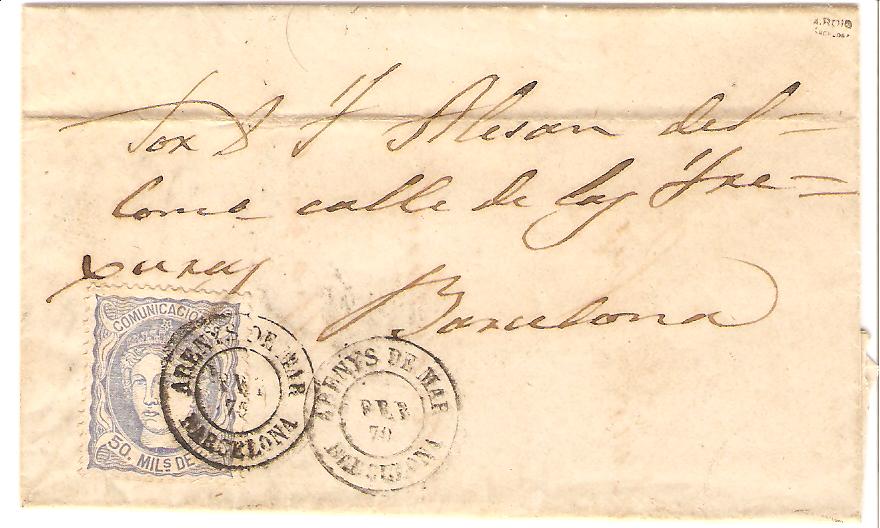 A. ROIG
BARCELONA
Sor D. J. Alesan del=
come calle de las Fre=
xuras
Barcelona
COMUNICACIO
50. MILS DE
ARENYS DE MAR
FEB
70
BARCELONA
ARENYS DE MAR
FEB
70
BARCELONA